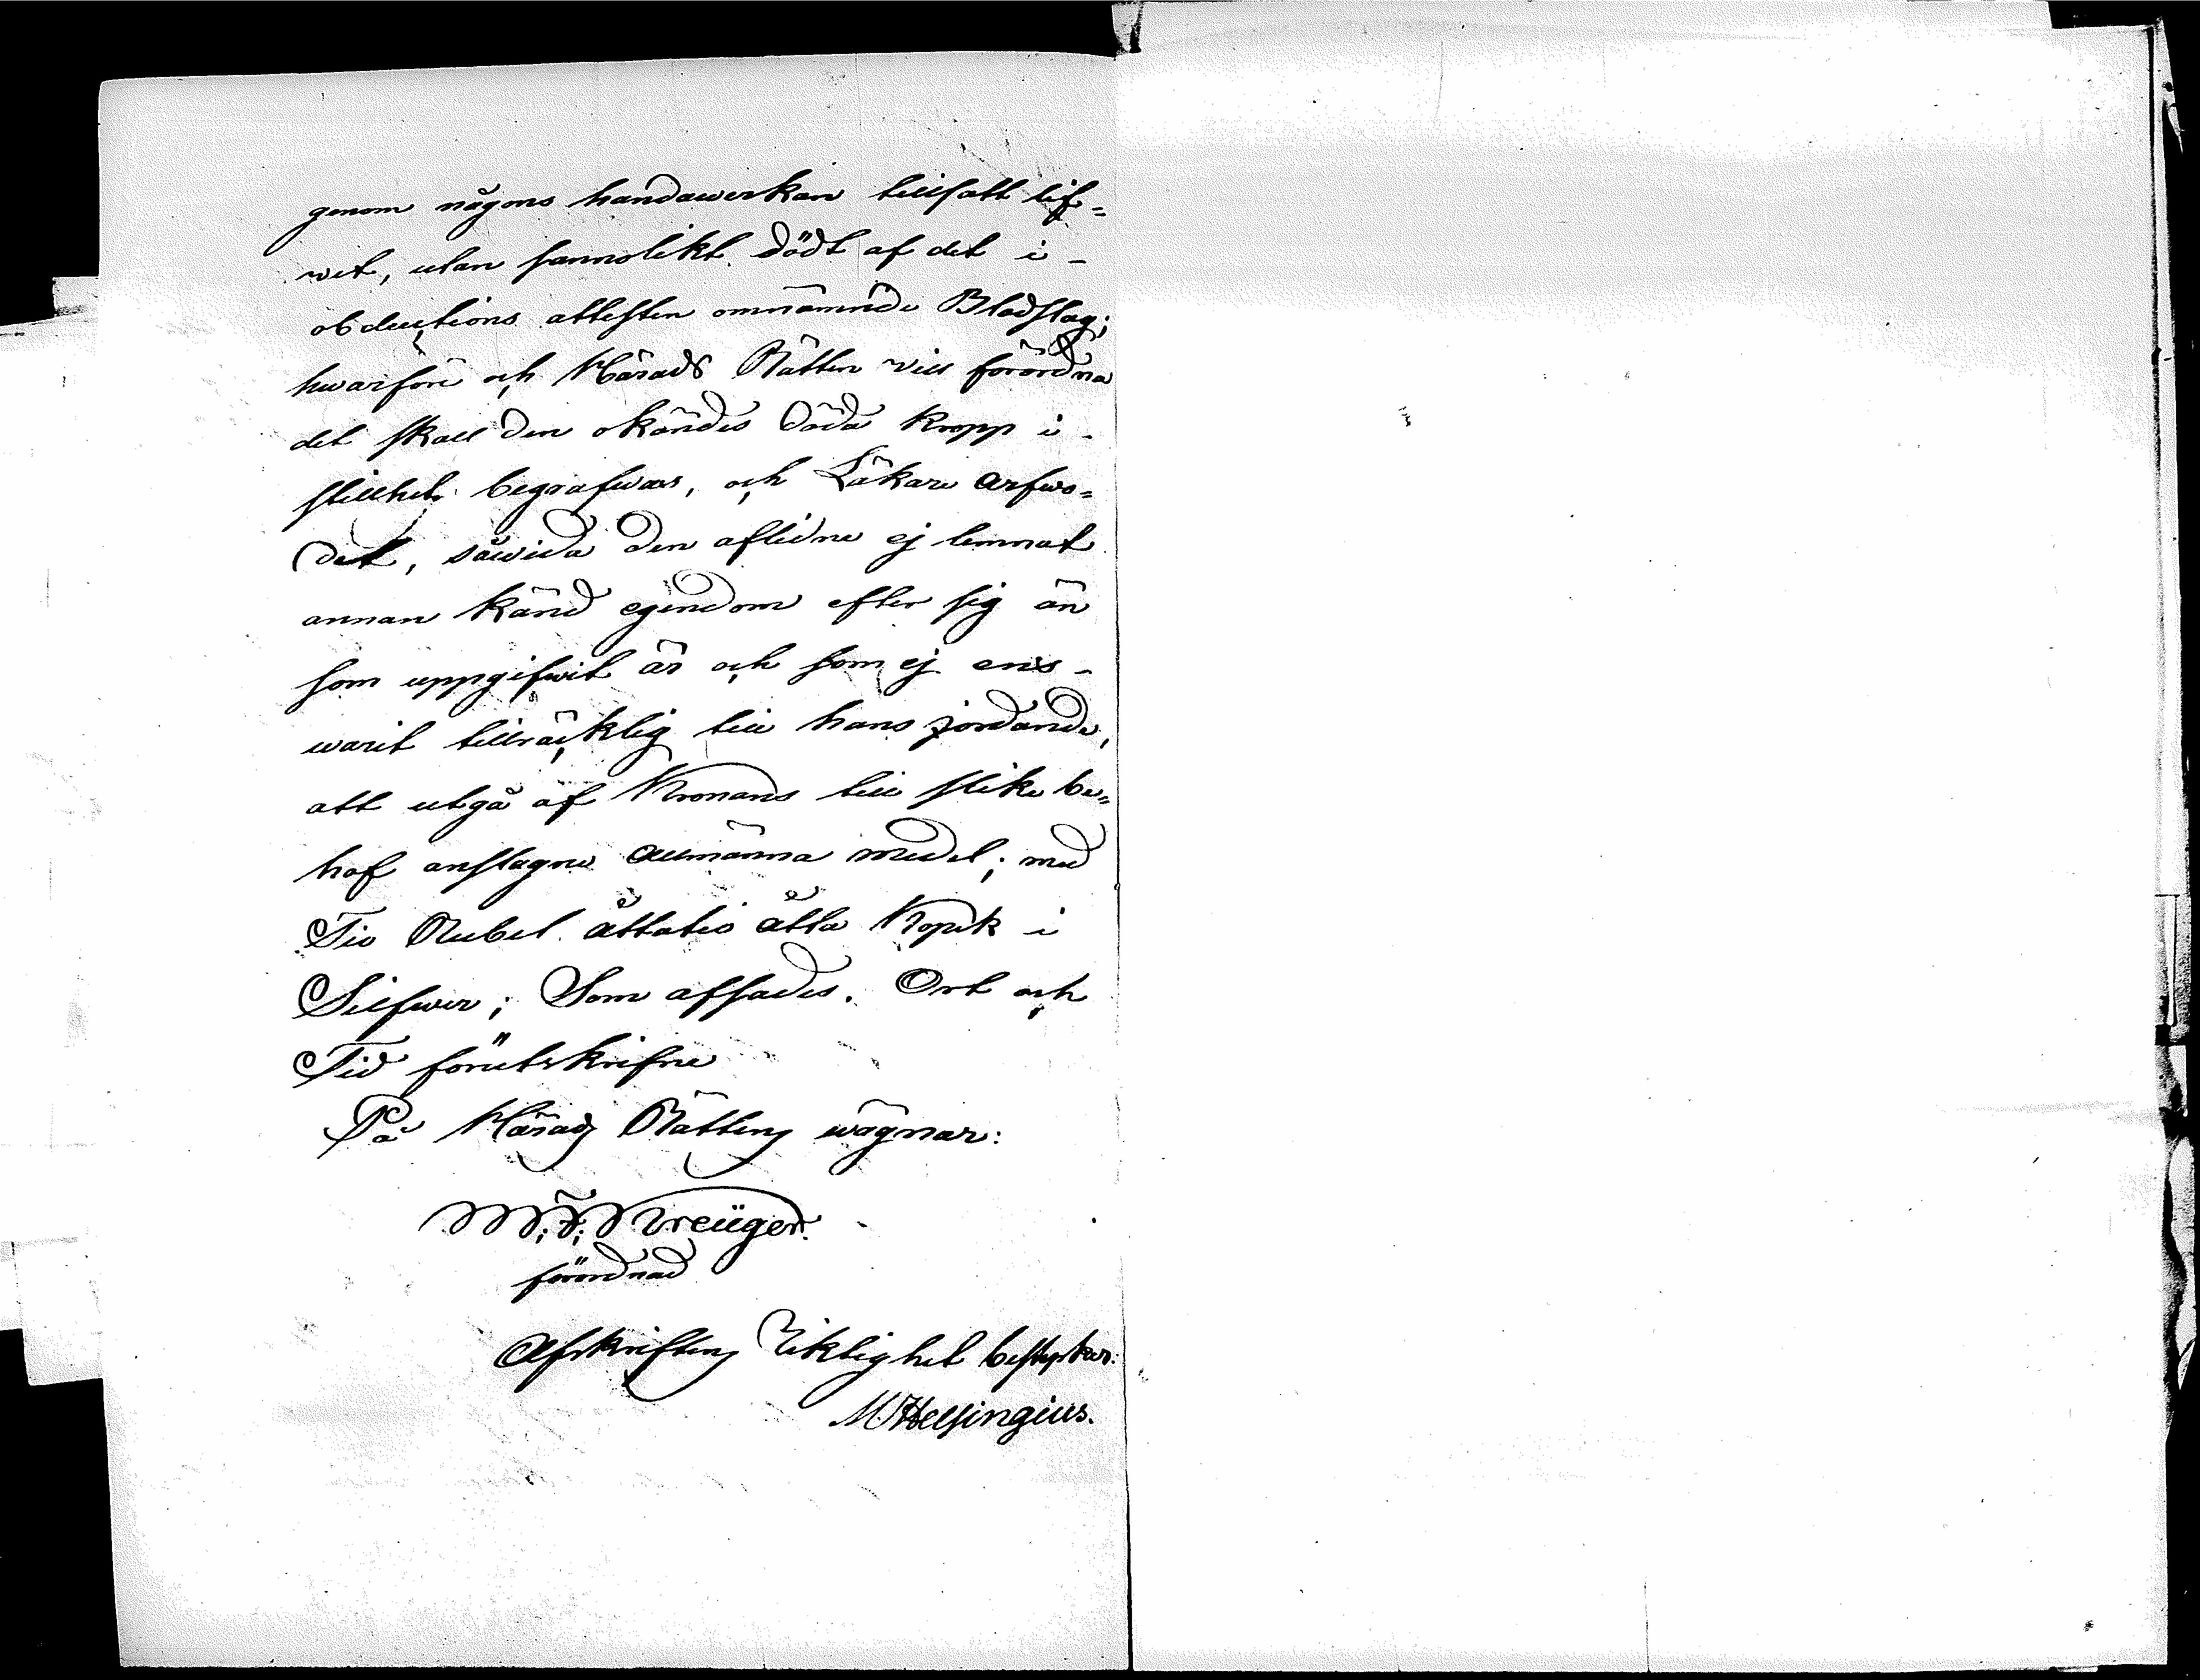 genom någons handawerkan tillsatt lif=
wet, utan sannolikt dödt af det i -
obductions attesten omnämnde Blodslag;
hwarföre och Härads Rätten vill förordna
det skall den okändes döda kropp i -
stillhet begrafwas, och Läkare arfwo=
det, såwida den aflidne ej lemnat
annan känd egendom efter sig än
som uppgifwit är och som ej ens -
warit tillräcklig till hans jordande,
att utgå af Kronans till slike be=
hof anslagne allmänna medel; med
Tio Rubel åttatio åtta Kopek i
Silfwer; Som afsades. Ort och
Tid förutskrifne
På Härads Rättens wägnar:
Kreüger.
förordnad
Afskriftens Riktighet bestyrker:
M Helsingius.